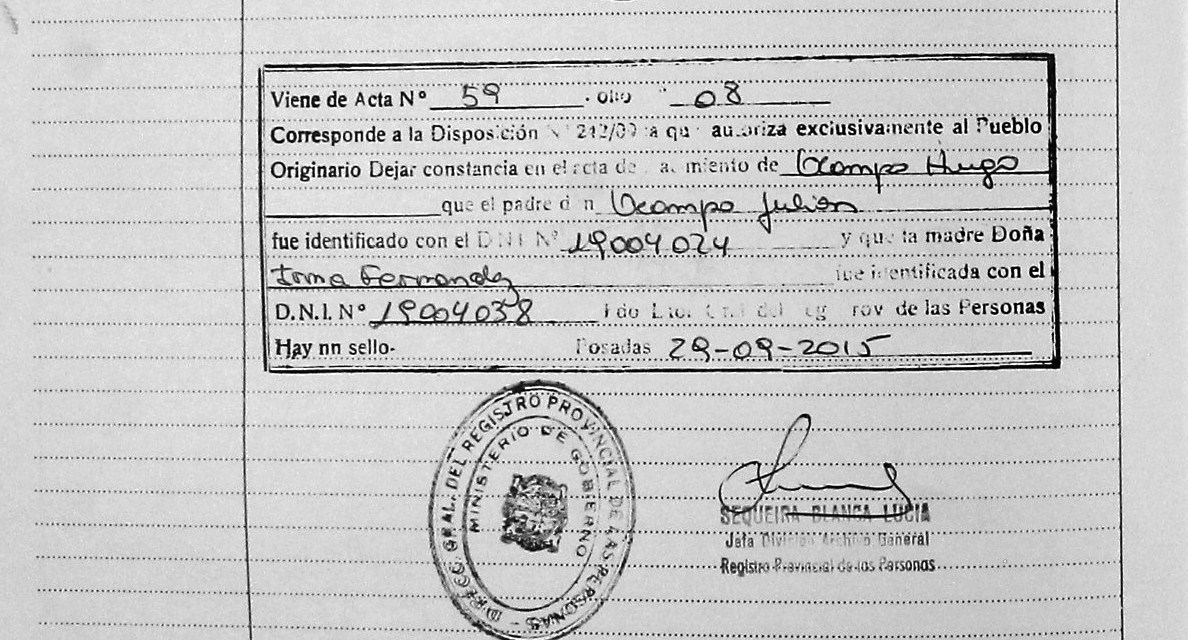 Viene de Acta Nº 59 . olio 08
Corresponde a la Disposición Nº 242/09 a qu autoriza exclusivamente al Pueblo
Originario Dejar constancia en el acta de miento de Ocampo Hugo
que el padre d n Ocampo Julian
fue identificado con el D N I Nº 19004024 y que la madre Doña
Irma Fernandez fue identificada con el
D.N.I. Nº 19004038 de las Personas
Hay nn sello- Posadas 29-09-2015
DIRECC. GRAL. DEL REGISTRO PROVINCIAL DE LAS PERSONAS -
MINISTERIO DE GOBIERNO
SEQUEIRA BLANCA LUCIA
Jefa División Archivo General
Registro Provincial de las Personas